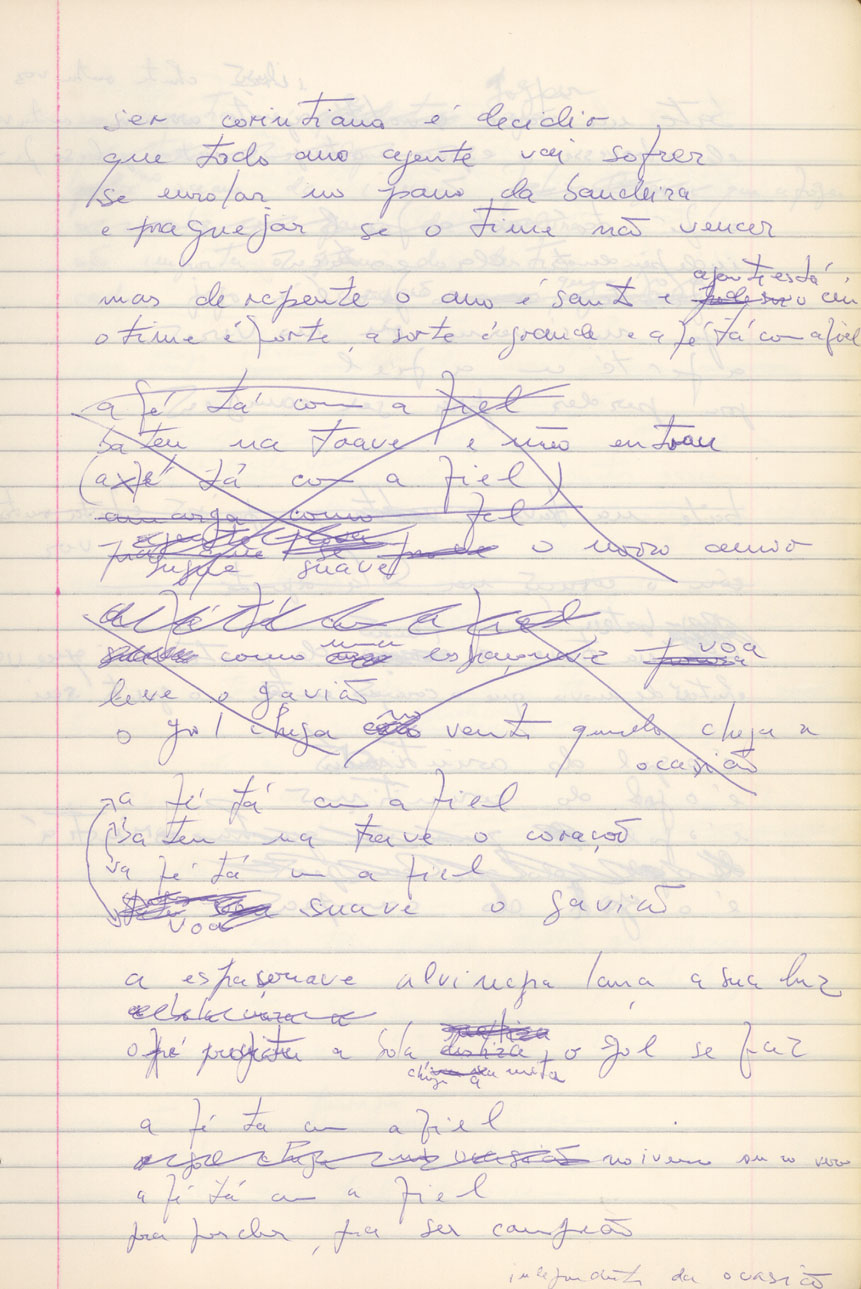 ser corintiano é decidir
que todo ano agente vai sofrer
se enrolar no pano da bandeira
e praguejar se o time não vencer
agente está
mas de repente o ano é sant e céu
o time é forte, a sorte é grande e a fé tá com a fiel
a fé tá com a fiel
bateu na trave e não entrou
(a fé tá com a fiel)
amarga como fel
o nosso amor
segue suave
a fé tá com a fiel
como uma espaçonave voa
leve o gavião
o gol chega no vento quando chega a
ocasião
a fé tá com a fiel
bateu na trave o coração
a fé tá com a fiel
suave o gavião
voa
a espaçonave alvinegra lança a sua luz
o pé projeta a bola, o gol se faz
chega a meta
a fé ta com a fiel
no inverno ou no
a fé tá com a fiel
pra perder, pra ser campeão
independente da ocasião